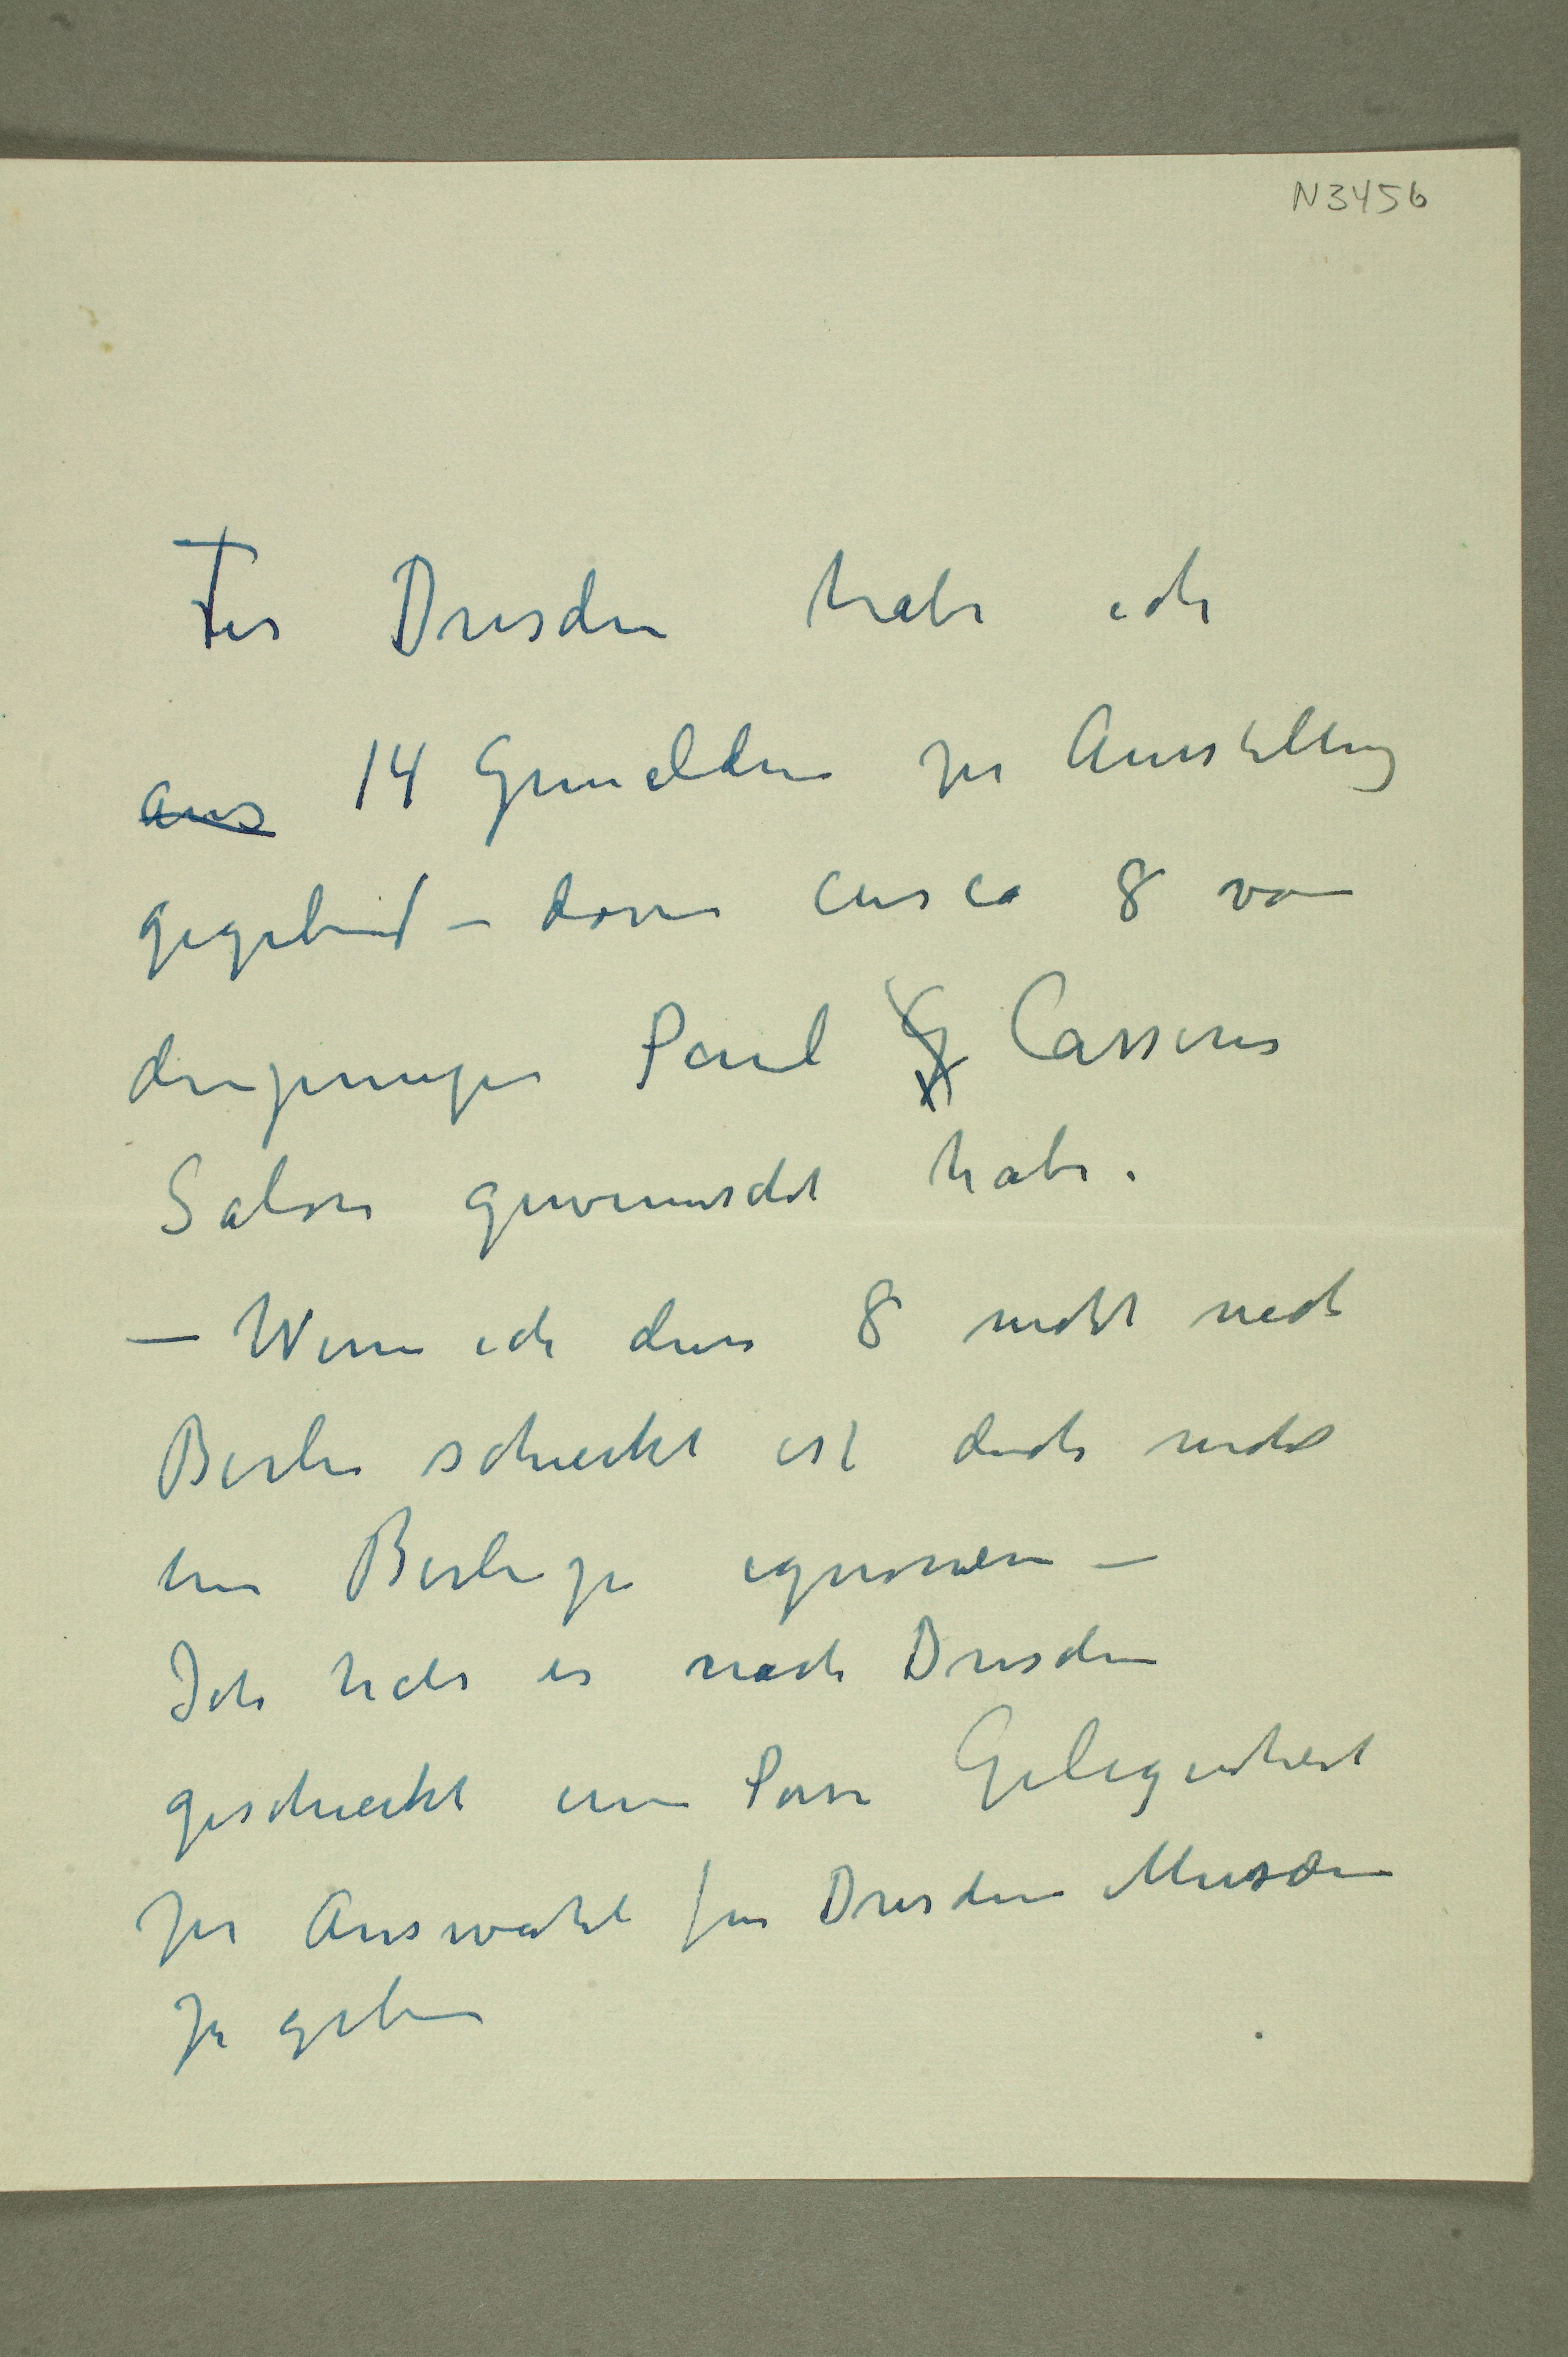 N3456
Für Dresden habe ich
aus 14 Gemälden zur Ausstellung
gegeben – davon circa 8 von
denjenigen Paul Cassirers
Salon gewünscht habe.
– Wenn ich diese 8 nicht nach
Berlin schickt ist doch nicht
um Berlin zu ignorieren –
Ich habe es nach Dresden
geschickt um Posse Gelegenheit
zur Auswahl für Dresden Museum
zu geben